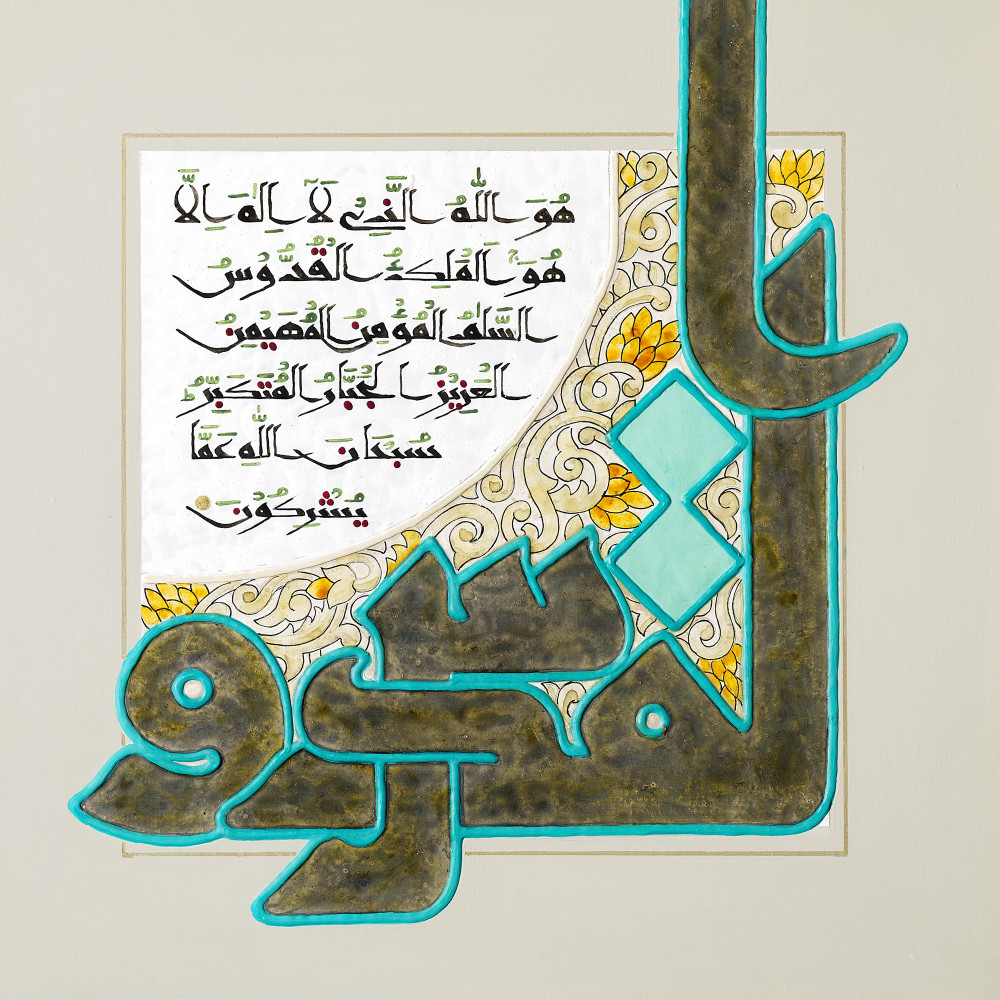 هُوَ اللّٰهُ الَّذِي لَآ إِلٰهَ إِلَّا
هُوَ الْمَلِكُ الْقُدُّوسُ
السَّلٰمُ الْمُؤْمِنُ الْمُهَيْمِنُ
الْعَزِيزُ الْجَبَّارُ الْمُتَكَبِّرُ
سُبْحَانَ اللّٰهِ عَمَّا
يُشْرِكُونَ